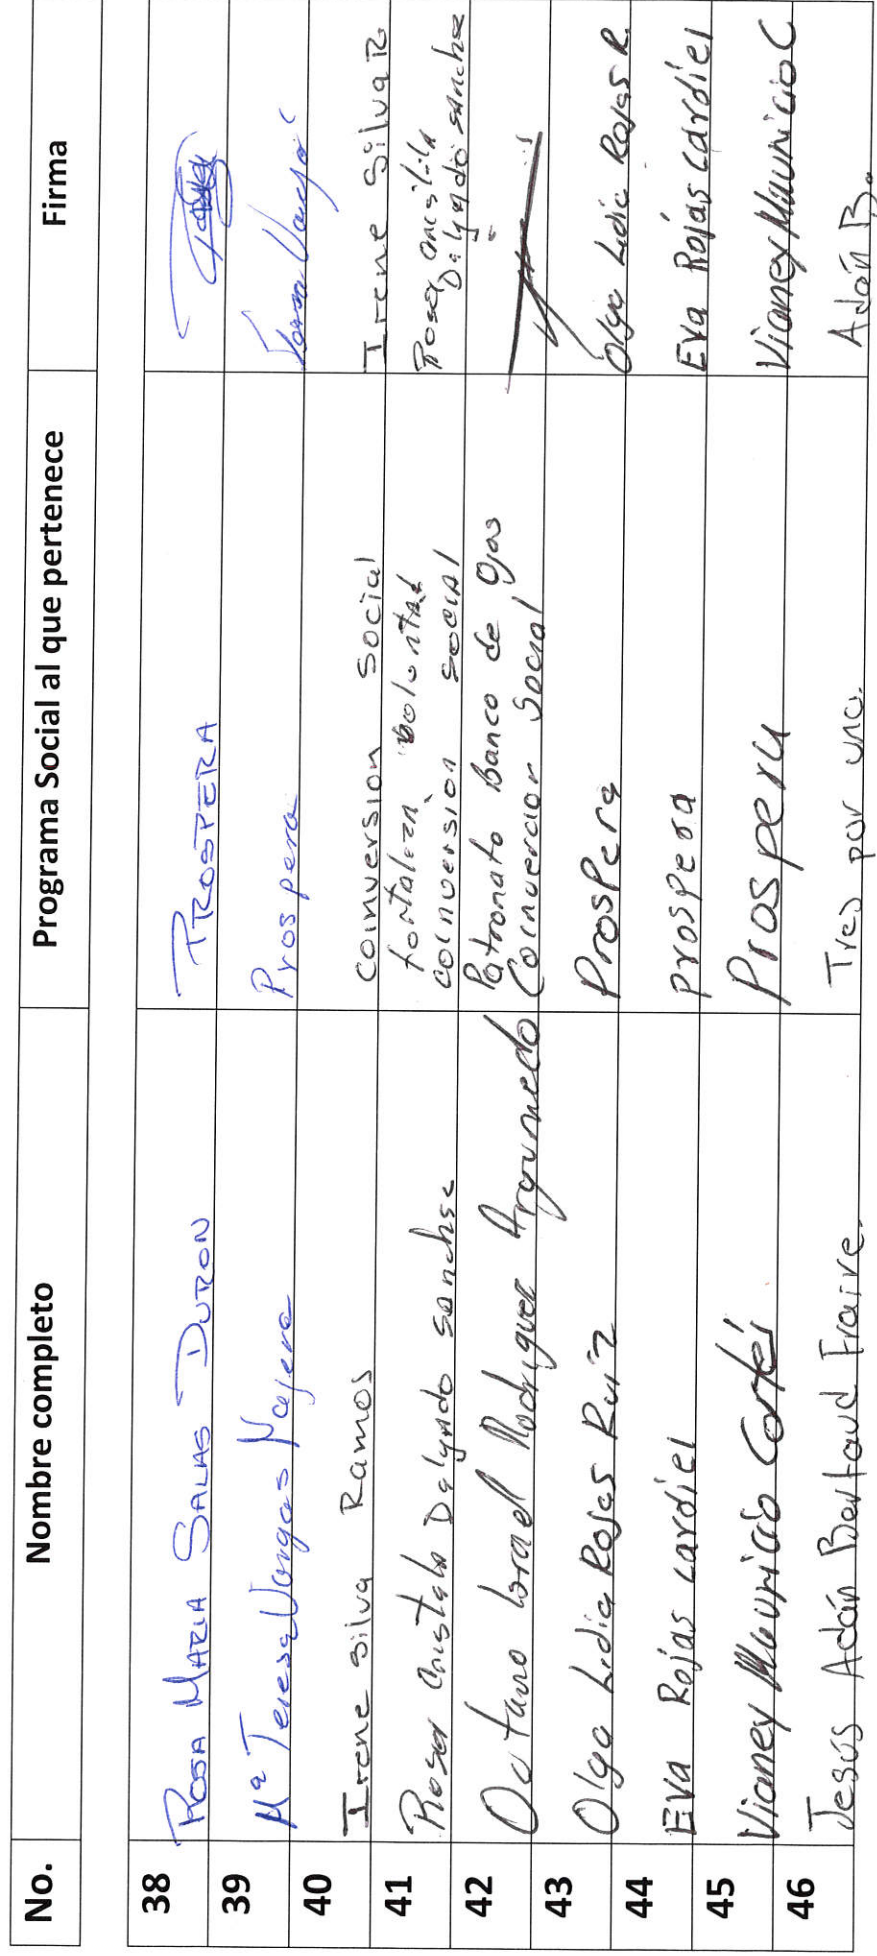 No. Nombre completo Programa Social al que pertenece Firma
38 ROSA MARIA SALAS DURON PROSPERA
39 Mª Teresa Vargas Najera Prospera
40 Irene Silva Ramos coinversion social Irene Silva R
41 Delgado sanchse fortaleza
coinversion social Delgado sanchse
42 Octavio Israel Rodriguez Argumedo Patronato Banco de Ojos
Coinvercion Social
43 Olga Lidia Rojas Ruiz Prospera Olga Lidia Rojas R
44 Eva Rojas cardiel prospera Eva Rojas cardiel
45 Vianey Mauricio Cortés Prospera Vianey Mauricio C
46 Jesús Adán Bertaud Fraire. Tres por uno. Adán B.